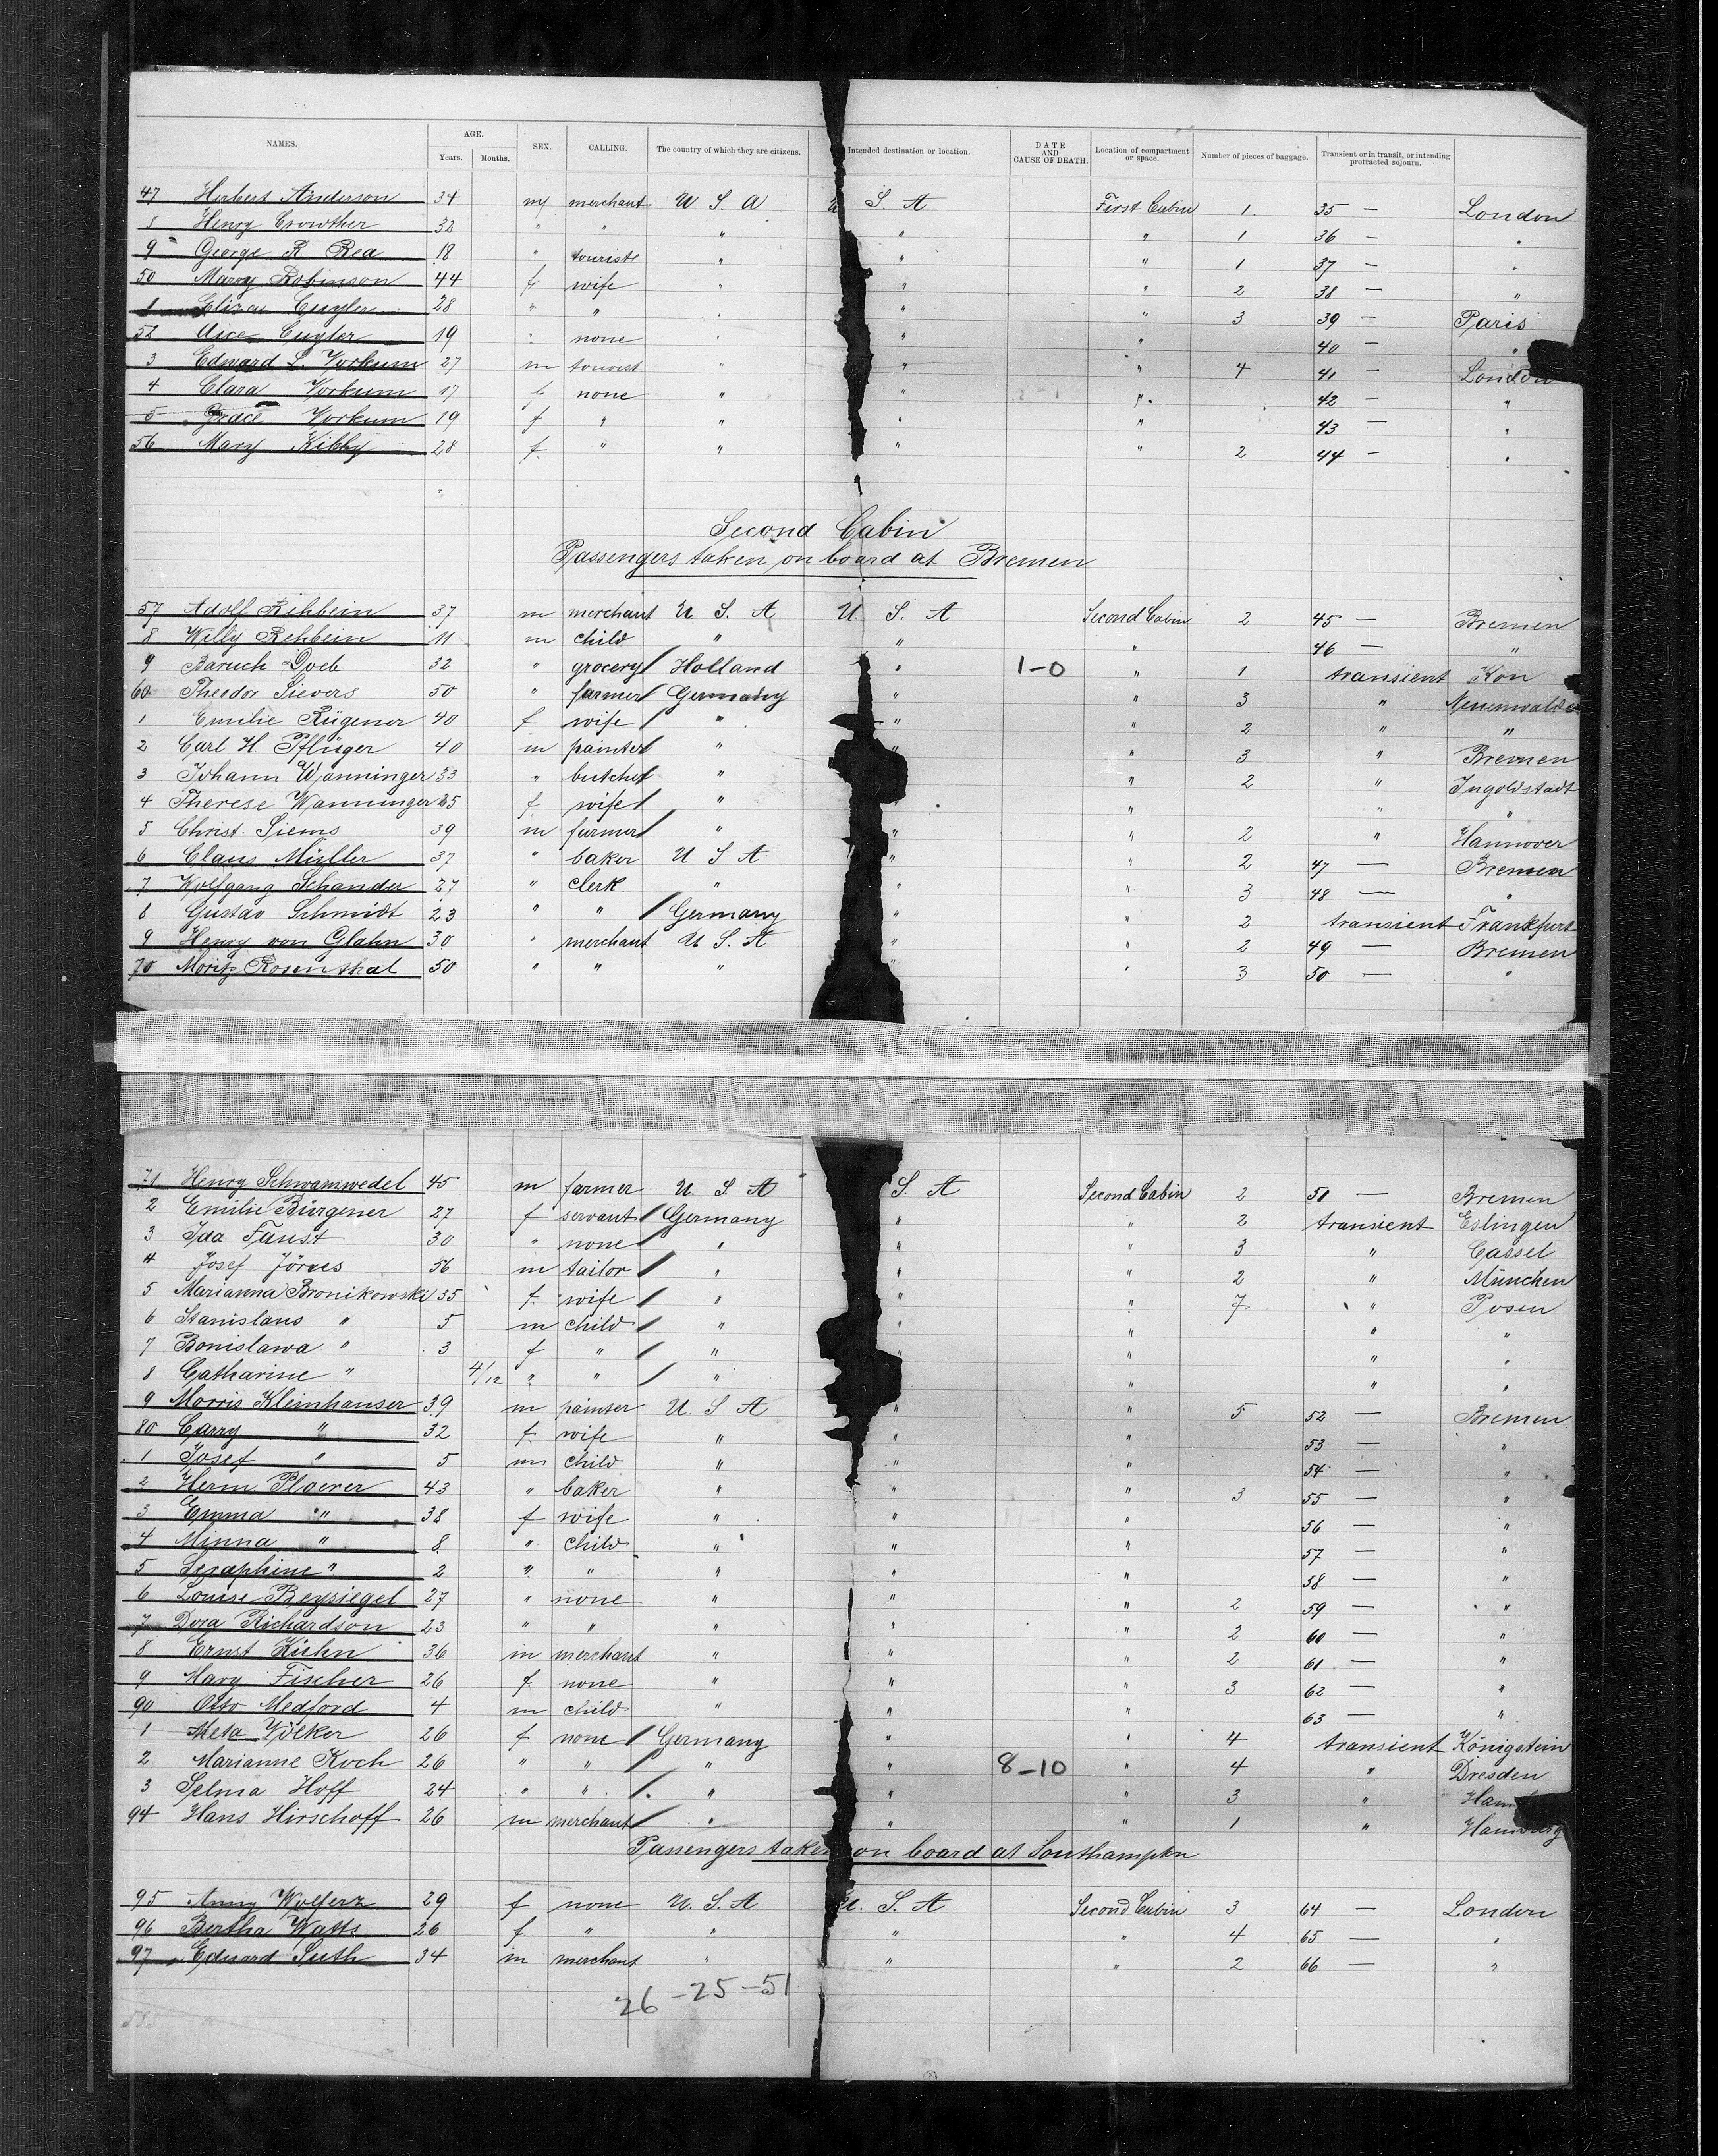 NAMES. AGE. SEX. CALLING. The country of which they are citizens. Intended destination or location. DATE AND CAUSE OF DEATH. Location of compartment or space. Number of pieces of baggage. Transient or in transit, or intending protracted sojourn.
Years. Months.
47 Herbert Anderson 34 m merchant U S. A U S. A First Cabin 1. 35 — London
8 Henry Crowther 33 " " " " " 1 36 — "
9 George R Rea 18 " tourist " " " 1 37 — "
50 Mary Robinson 44 f wife " " " 2 38 — "
1 Eliza Cuyler 28 " " " " " 3 39 — Paris
52 Cuyler 19 " none " " " 40 — "
3 Edward L. Vorkum 27 m tourist " " " 4 41 — London
4 Clara Vorkum 17 f none " " " 42 — "
5 Grace Vorkum 19 f " " " " 43 — "
56 Mary Kibby 28 f " " " " 2 44 — "
Second Cabin
Passengers taken on board at Bremen
57 Adolf Rehbein 37 m merchant U S. A U. S. A Second Cabin 2 45 — Bremen
8 Willy Rehbein 11 m child " " " 46 — "
9 Baruch Doeb 32 " grocery / Holland " 1-0 " 1 transient Kon
60 Theodor Sievers 50 " farmer / Germany " " 3 " Neuenwalde
1 Emilie Rügener 40 f wife / " " " 2 " "
2 Carl H. Pflüger 40 m painter / " " " 3 " Bremen
3 Johann Wanninger 33 " butcher / " " 2 " Ingoldstadt
4 Therese Wanninger 25 f wife / " " " "
5 Christ. Siems 39 m farmer / " " " 2 " Hannover
6 Claus Müller 37 " baker U S A " " 2 47 — Bremen
7 Wolfgang Schander 27 " clerk " " " 3 48 — "
8 Gustav Schmidt 23 " " / Germany " " 2 transient Frankfurt
9 Henry von Glahn 30 " merchant U. S. A " " 2 49 — Bremen
70 Moritz Rosenthal 50 " " " " " 3 50 — "
71 Henry Schwamwedel 45 m farmer U. S. A S. A Second Cabin 2 51 — Bremen
2 Emilie Bürgener 27 f servant / Germany " " 2 transient Eslingen
3 Ida Faust 30 " none / " " " 3 " Cassel
4 Josef Jörres 56 m tailor / " " " 2 " München
5 Marianna Bronikowski 35 f wife / " " " 7 " Posen
6 Stanislaus " 5 m child / " " " "
7 Bonislawa " 3 f " / " " " " "
8 Catharine " 4/12 " " / " " " "
9 Morris Kleinhauser 39 m painter U. S A " " 5 52 — Bremen
80 Carry " 32 f wife " " 53 — "
1 Josef " 5 m child " " " 54 — "
2 Herm Ploever 43 " baker " " " 3 55 — "
3 Emma " 38 f wife " " " 56 — "
4 Minna " 8 " child " " " 57 — "
5 Seraphine " 2 " " " " " 58 — "
6 Louise Beysiegel 27 " none " " " 2 59 — "
7 Dora Richardson 23 " " " " " 2 60 — "
8 Ernst Kühn 36 m merchant " " " 2 61 — "
9 Mary Fischer 26 f none " " " 3 62 — "
90 Otto Medford 4 m child " " " 63 — "
1 Meta Völker 26 f none / Germany " " 4 transient Königstein
2 Marianne Koch 26 " " / " " 8-10 " 4 " Dresden
3 Selma Hoff 24 " " / " " " 3 "
94 Hans Hirschoff 26 m merchant / " " " 1 " Hamburg
Passengers taken on board at Southampton
95 Anny Wolferz 29 f none U. S. A U. S. A Second Cabin 3 64 — London
96 Bertha Watts 26 f " " " " 4 65 — "
97 Eduard Suth 34 m merchant " " " 2 66 — "
26 - 25 - 51